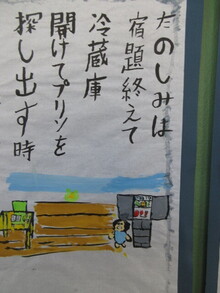 たのしみは
宿題終えて
冷蔵庫
開けてプリンを
探し出す時